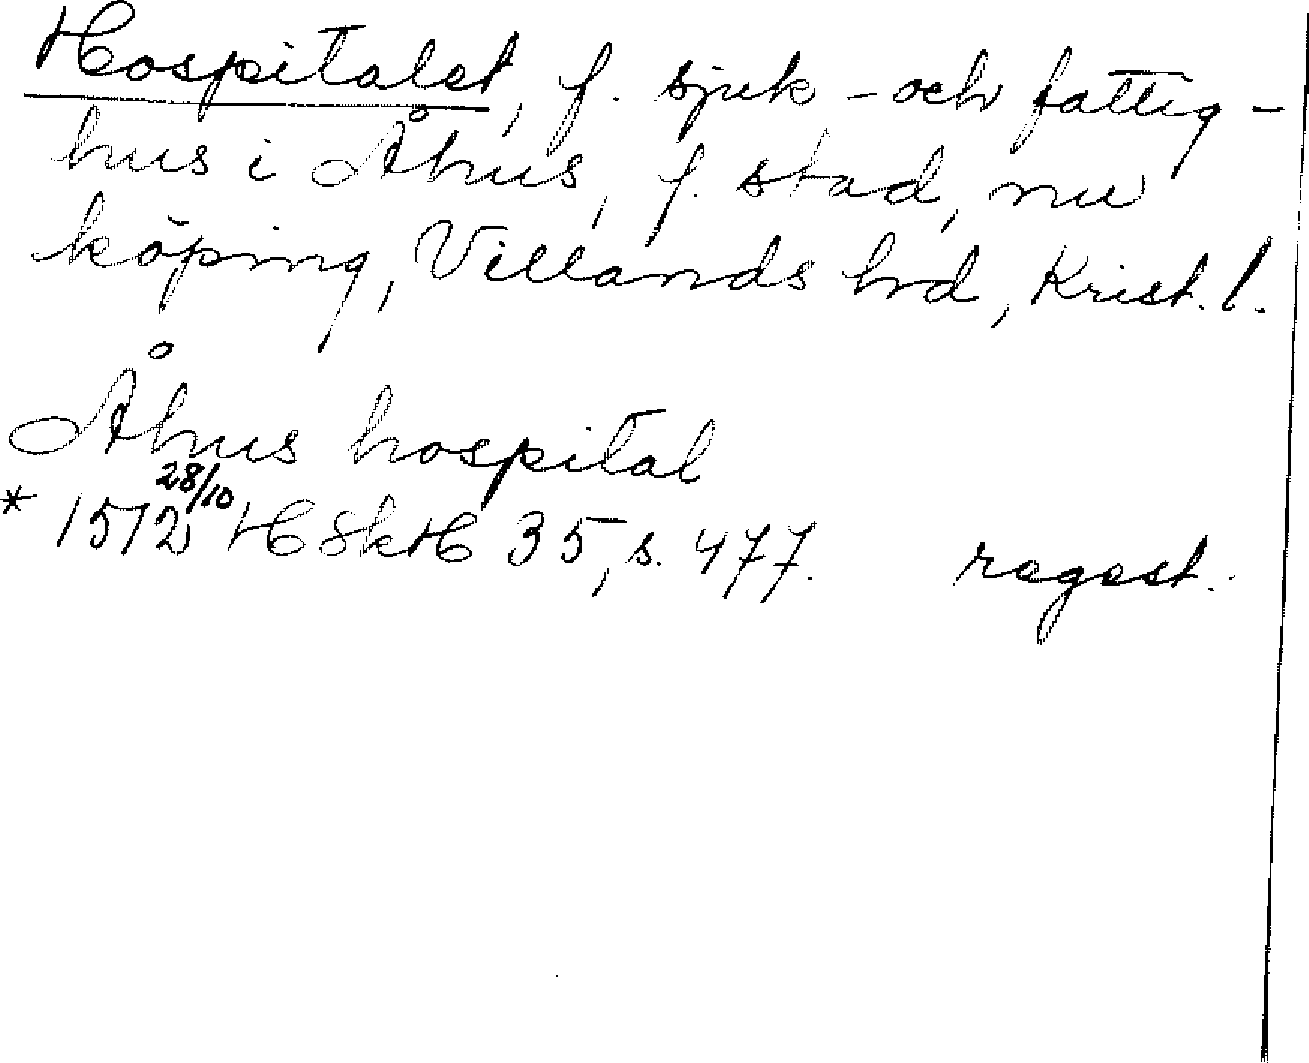 Hospitalet, f. sjuk- och fattig-
hus i Åhus, f. stad, nu
köping, Villands hd, Krist. l.
Åhus hospital
* 1512 28/10 HSkH 35, s. 477. regest.